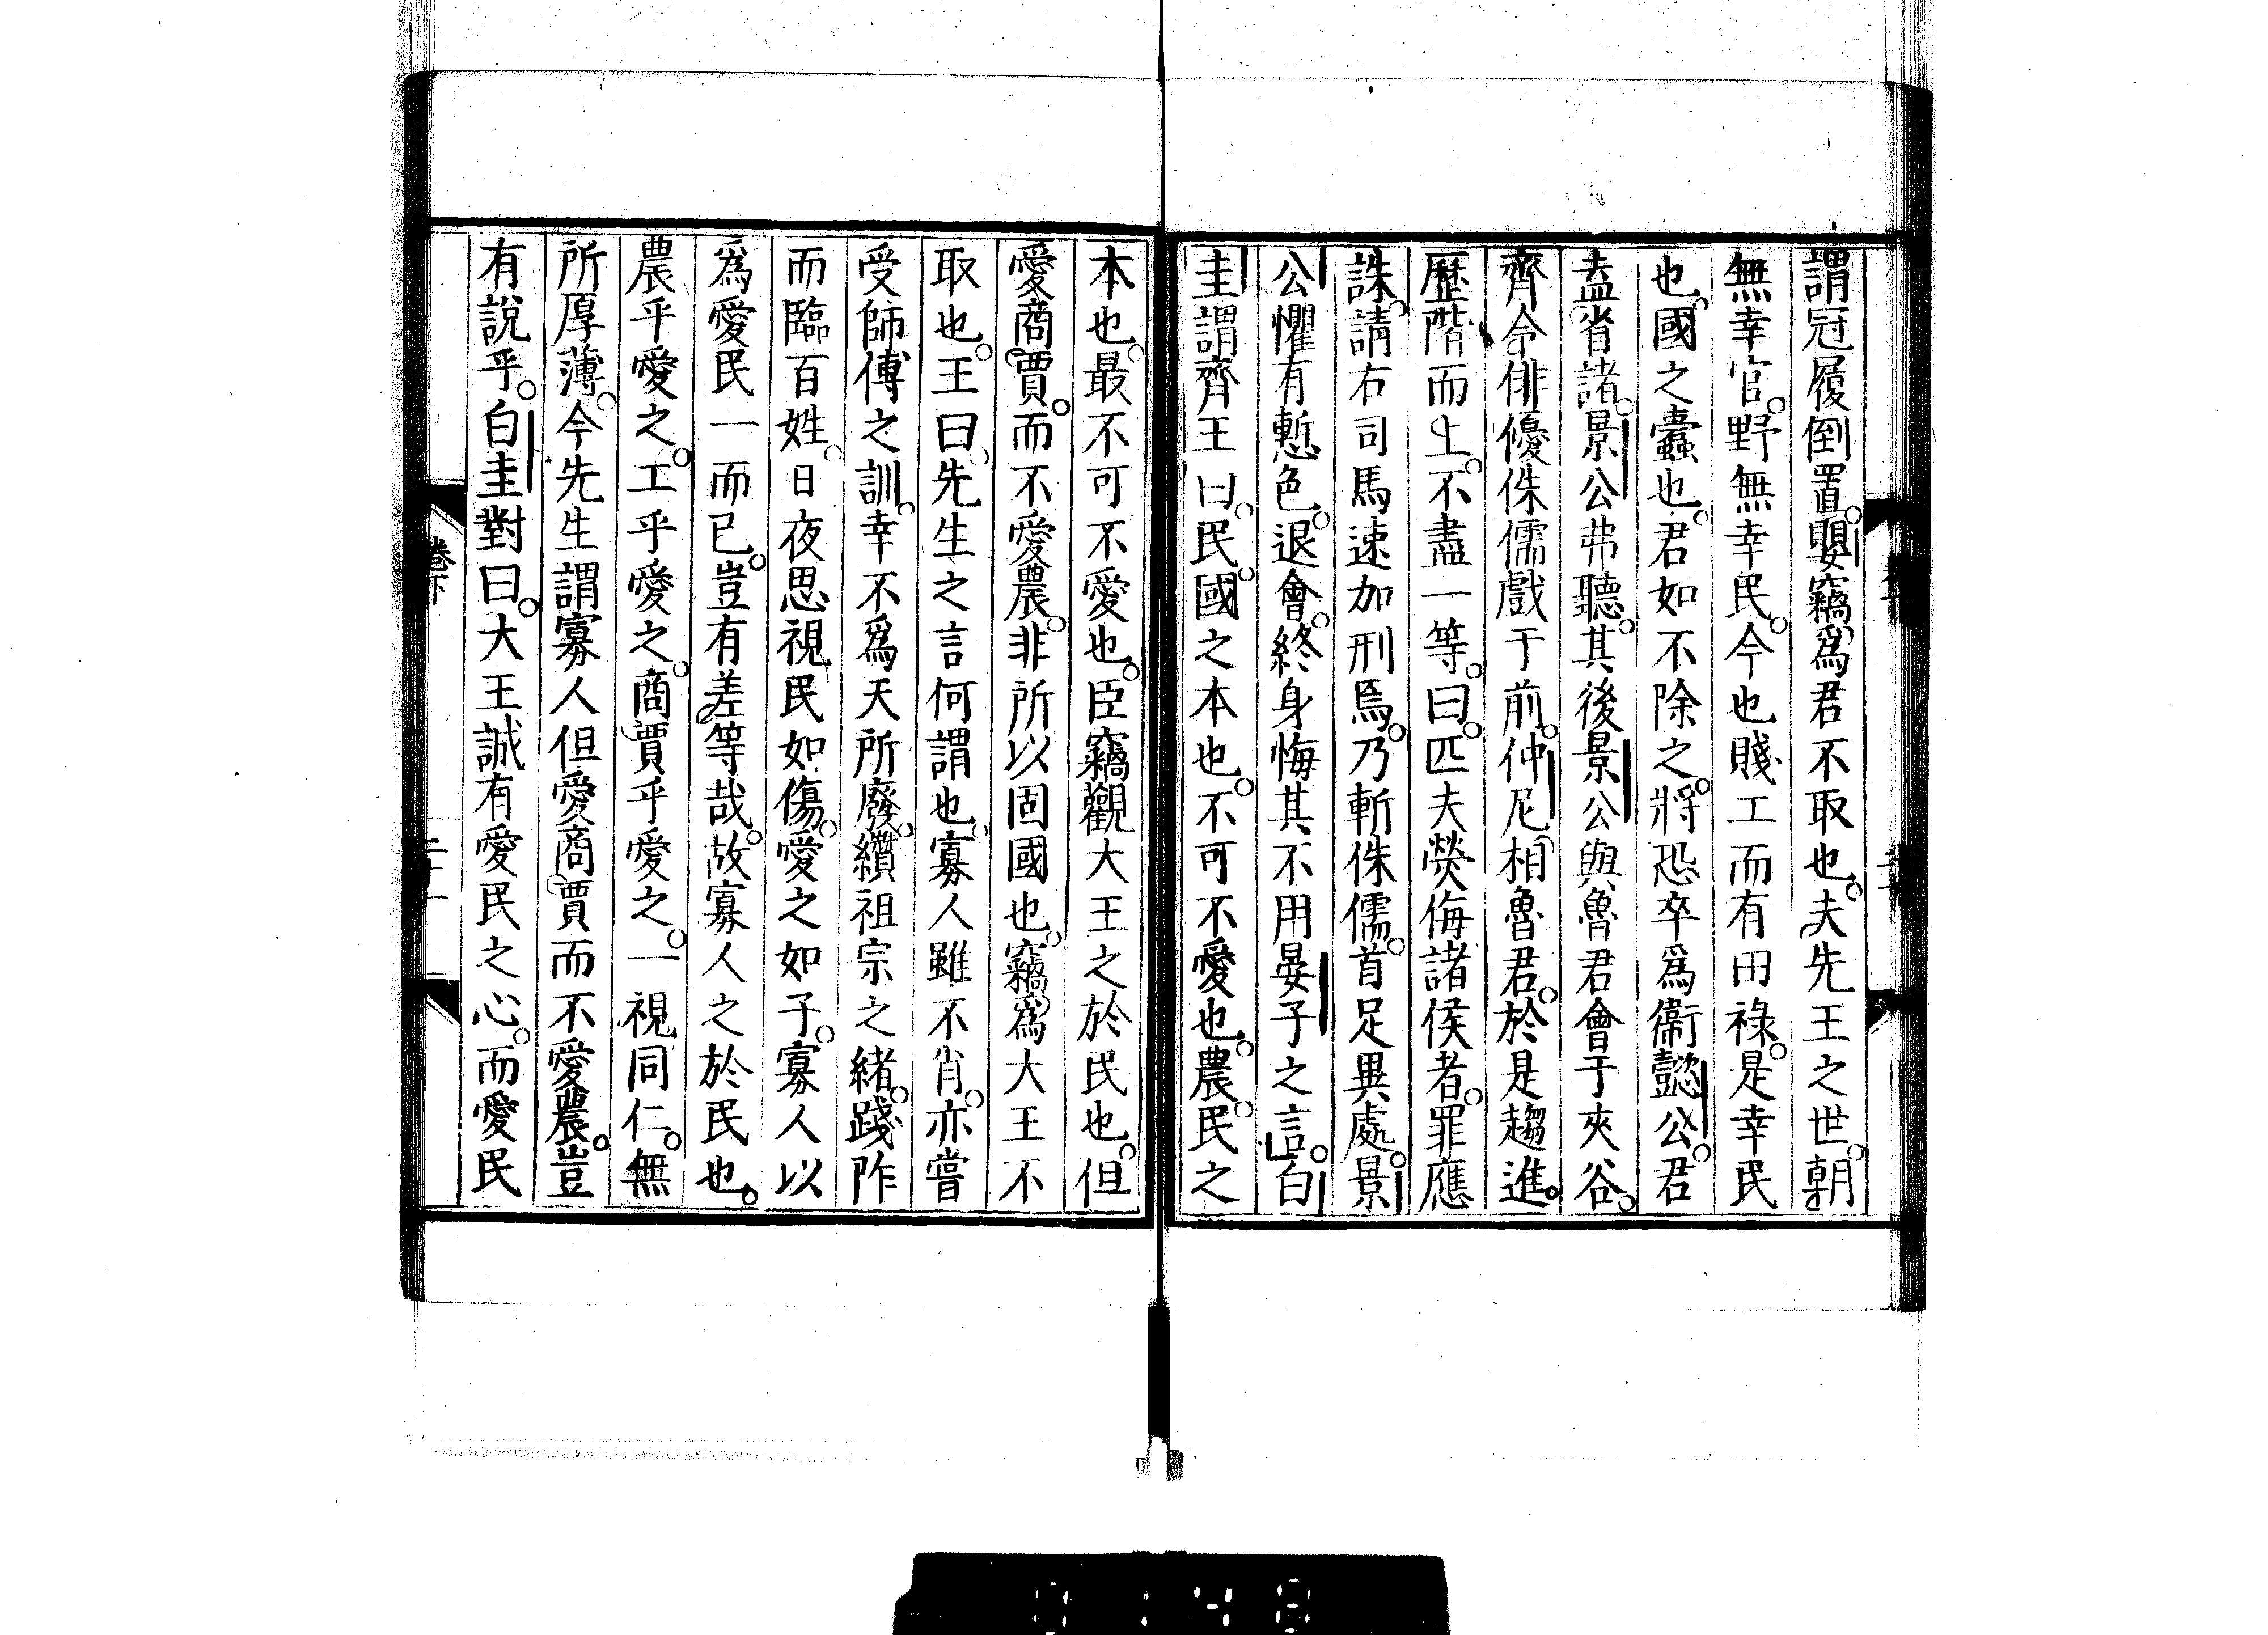 謂冠履倒置。嬰竊爲君不取也。夫先王之世。朝
無幸官。野無幸民。今也賤工而有田祿。是幸民
也。國之蠹也。君如不除之。將恐卒爲衞懿公。君
盍省諸。景公弗聽。其後景公與魯君會于夾谷。
齊令俳優侏儒戲于前。仲尼相魯君。於是趨進。
歷階而上。不盡一等。曰。匹夫熒侮諸侯者。罪應
誅。請右司馬速加刑焉。乃斬侏儒。首足異處。景
公懼有慙色。退會。終身悔其不用晏子之言。白
圭謂齊王曰。民國之本也。不可不愛也。農民之
本也。最不可不愛也。臣竊觀大王之於民也。但
愛商賈。而不愛農。非所以固國也。竊爲大王不
取也。王曰。先生之言何謂也。寡人雖不肖。亦嘗
受師傅之訓。幸不爲天所廢。纘祖宗之緒。踐阼
而臨百姓。日夜思視民如傷。愛之如子。寡人以
爲愛民一而已。豈有差等哉。故寡人之於民也。
農乎愛之。工乎愛之。商賈乎愛之。一視同仁。無
所厚薄。今先生謂寡人但愛商賈而不愛農。豈
有說乎。白圭對曰。大王誠有愛民之心。而愛民
卷下